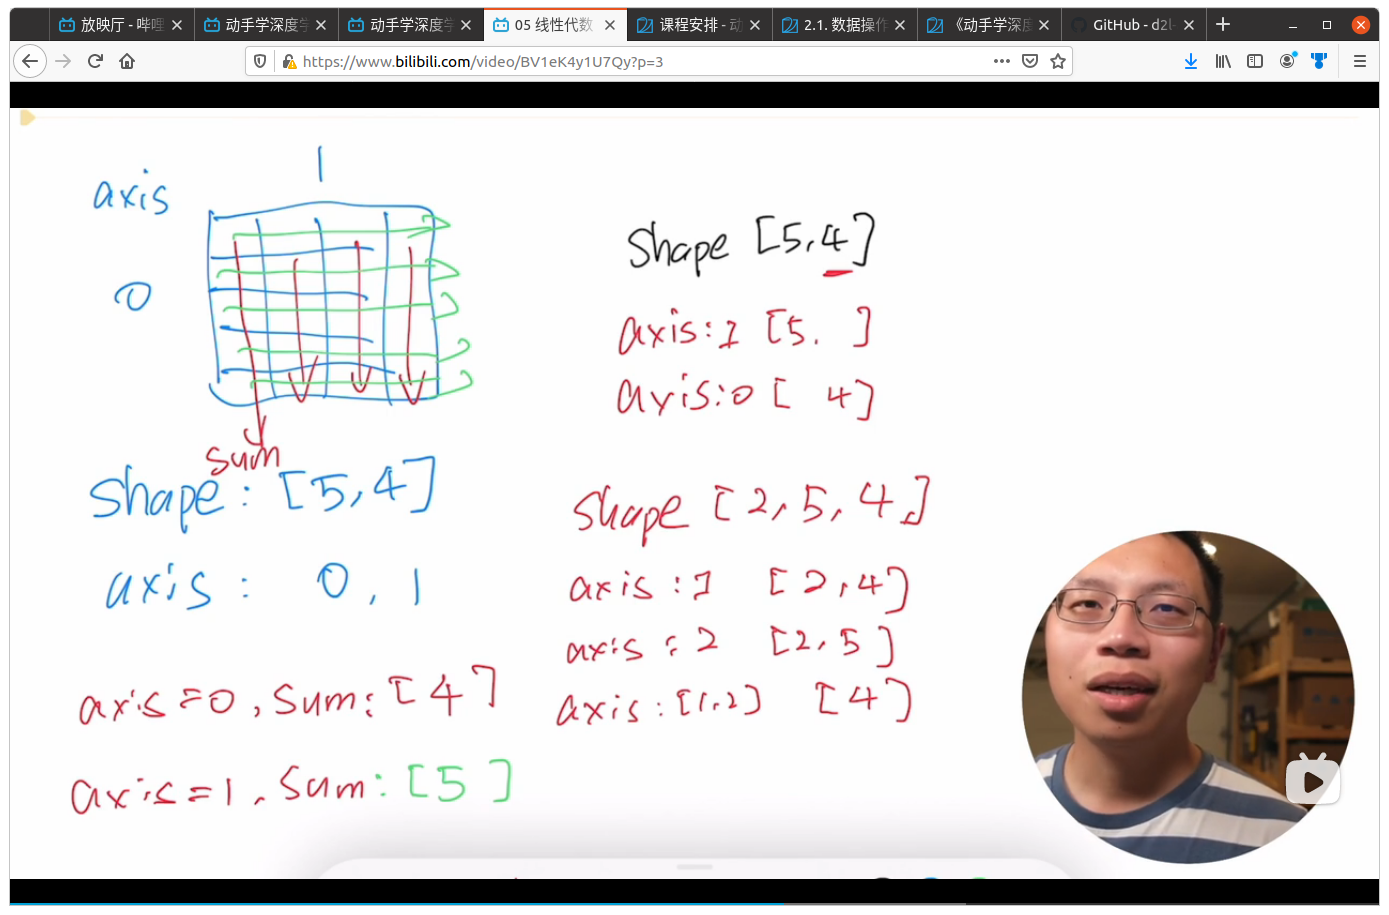 放映厅 - 哔哩
动手学深度学
动手学深度学
05 线性代数
课程安排 - 动
2.1. 数据操作
《动手学深度
GitHub - d2l-
https://www.bilibili.com/video/BV1eK4y1U7Qy?p=3
1
axis
0
sum
shape : [5,4]
axis : 0 , 1
axis=0 , sum: [4]
axis=1 , sum: [5 ]
shape [5,4]
axis:1 [5. ]
axis:0 [ 4]
shape [2,5,4]
axis :1 [2,4]
axis : 2 [2,5]
axis :[1,2] [4]